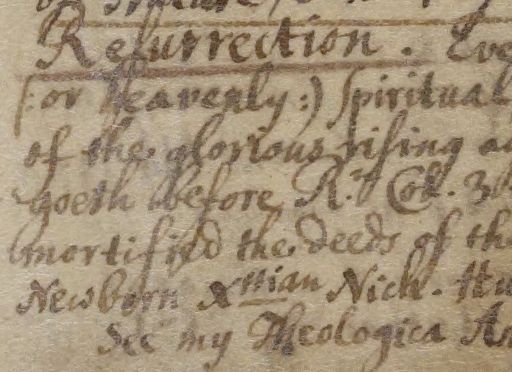 Resurrection. Eve
(:or heavenly:) Spiritual
of the glorious rising a
goeth before R. Cok. 36
mortified the deeds of the
Newborn Xttian Nich. Hu
See my Theologica An